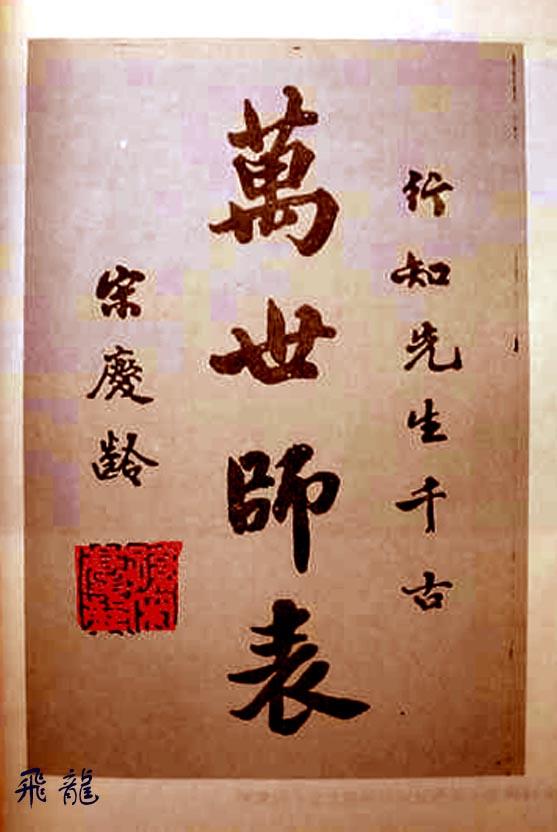 行知先生千古
萬世師表
宋慶齡
飛龍